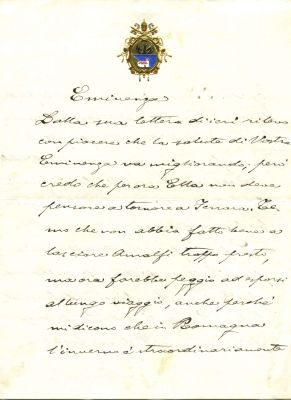 Eminenza
Dalla sua lettera di ieri rilevo
con piacere che la salute di Vostra
Eminenza va migliorando; però
credo che per ora Ella non deve
pensare a tornare a Ferrara. Te-
mo che non abbia fatto bene a
lasciare Amalfi troppo presto,
ma ora farebbe peggio ad esporsi
al lungo viaggio, anche perchè
mi dicono che in Romagna
l'inverno è straordinariamente